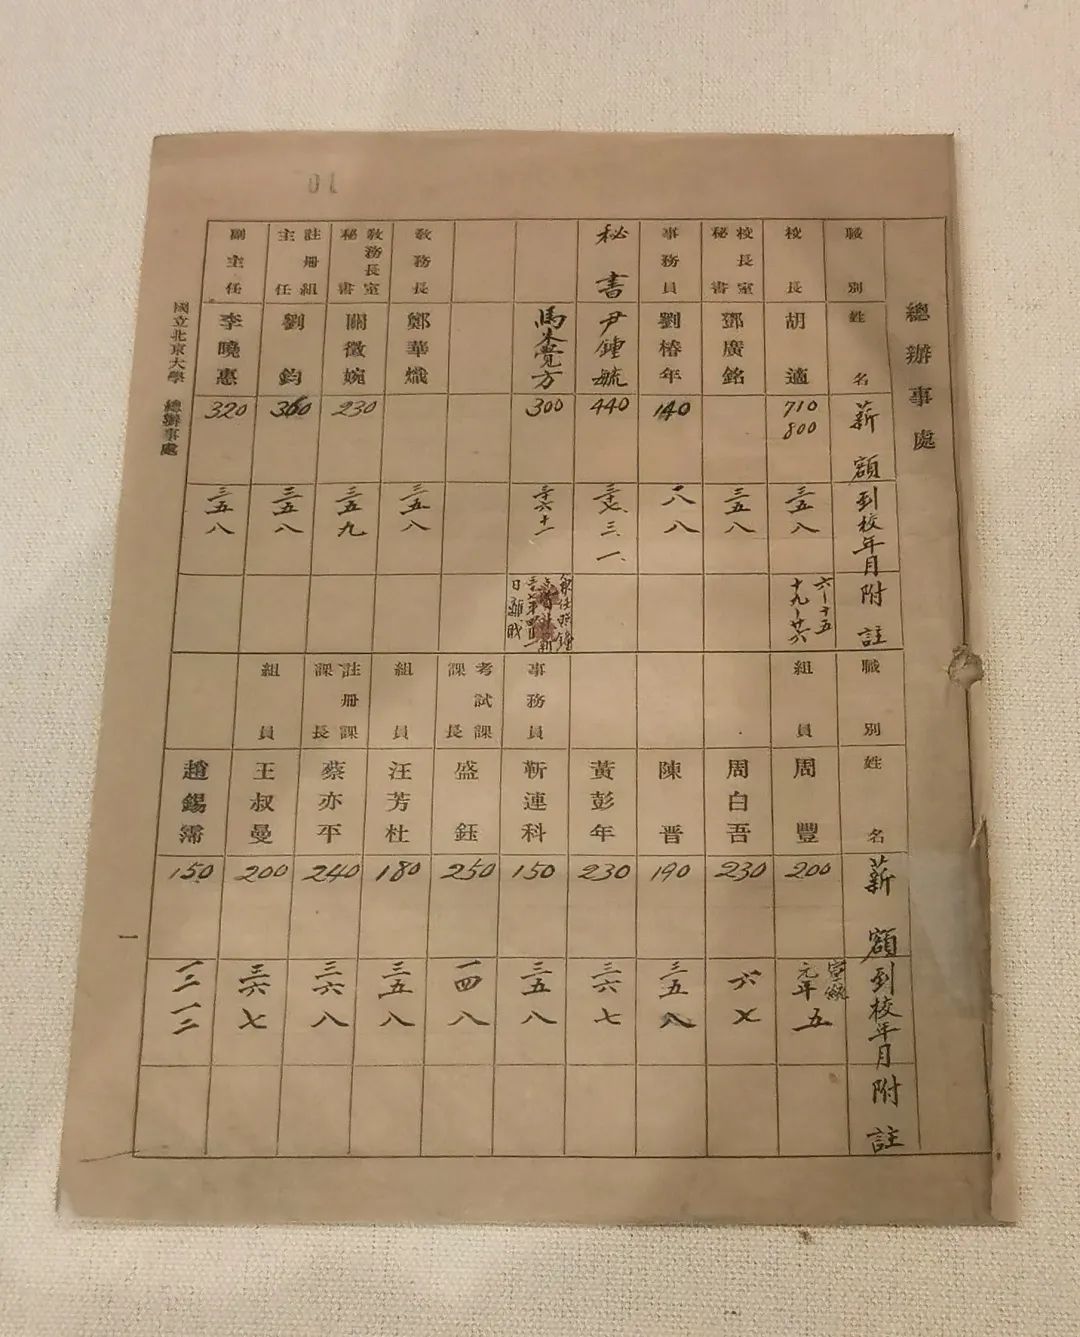 總辦事處
職別
姓名
薪額
到校年月
附註
校長
胡適
710
800
三五八
六—十五
十九—廿六
校長室秘書
鄧廣銘
三五八
事務員
劉椿年
140
八
秘書
尹鍾毓
440
三、一、
馬朱覺方
300
六十一
日離職
教務長
鄭華熾
三五八
教務長室秘書
關徵婉
230
三五九
註冊組主任
劉鈞
360
三五八
副主任
李曉惠
320
三五八
職別
姓名
薪額
到校年月
附註
組員
周豐
200
宣統
元年五
周白吾
230
六七
陳晉
190
三五八
黃彭年
230
三六七
事務員
靳連科
150
三五八
考試課課長
盛鈺
250
一四八
組員
汪芳杜
180
三五八
註冊課課長
蔡亦平
240
三六八
組員
王叔曼
200
三六七
趙錫霈
150
一二一二
國立北京大學 總辦事處
一
01